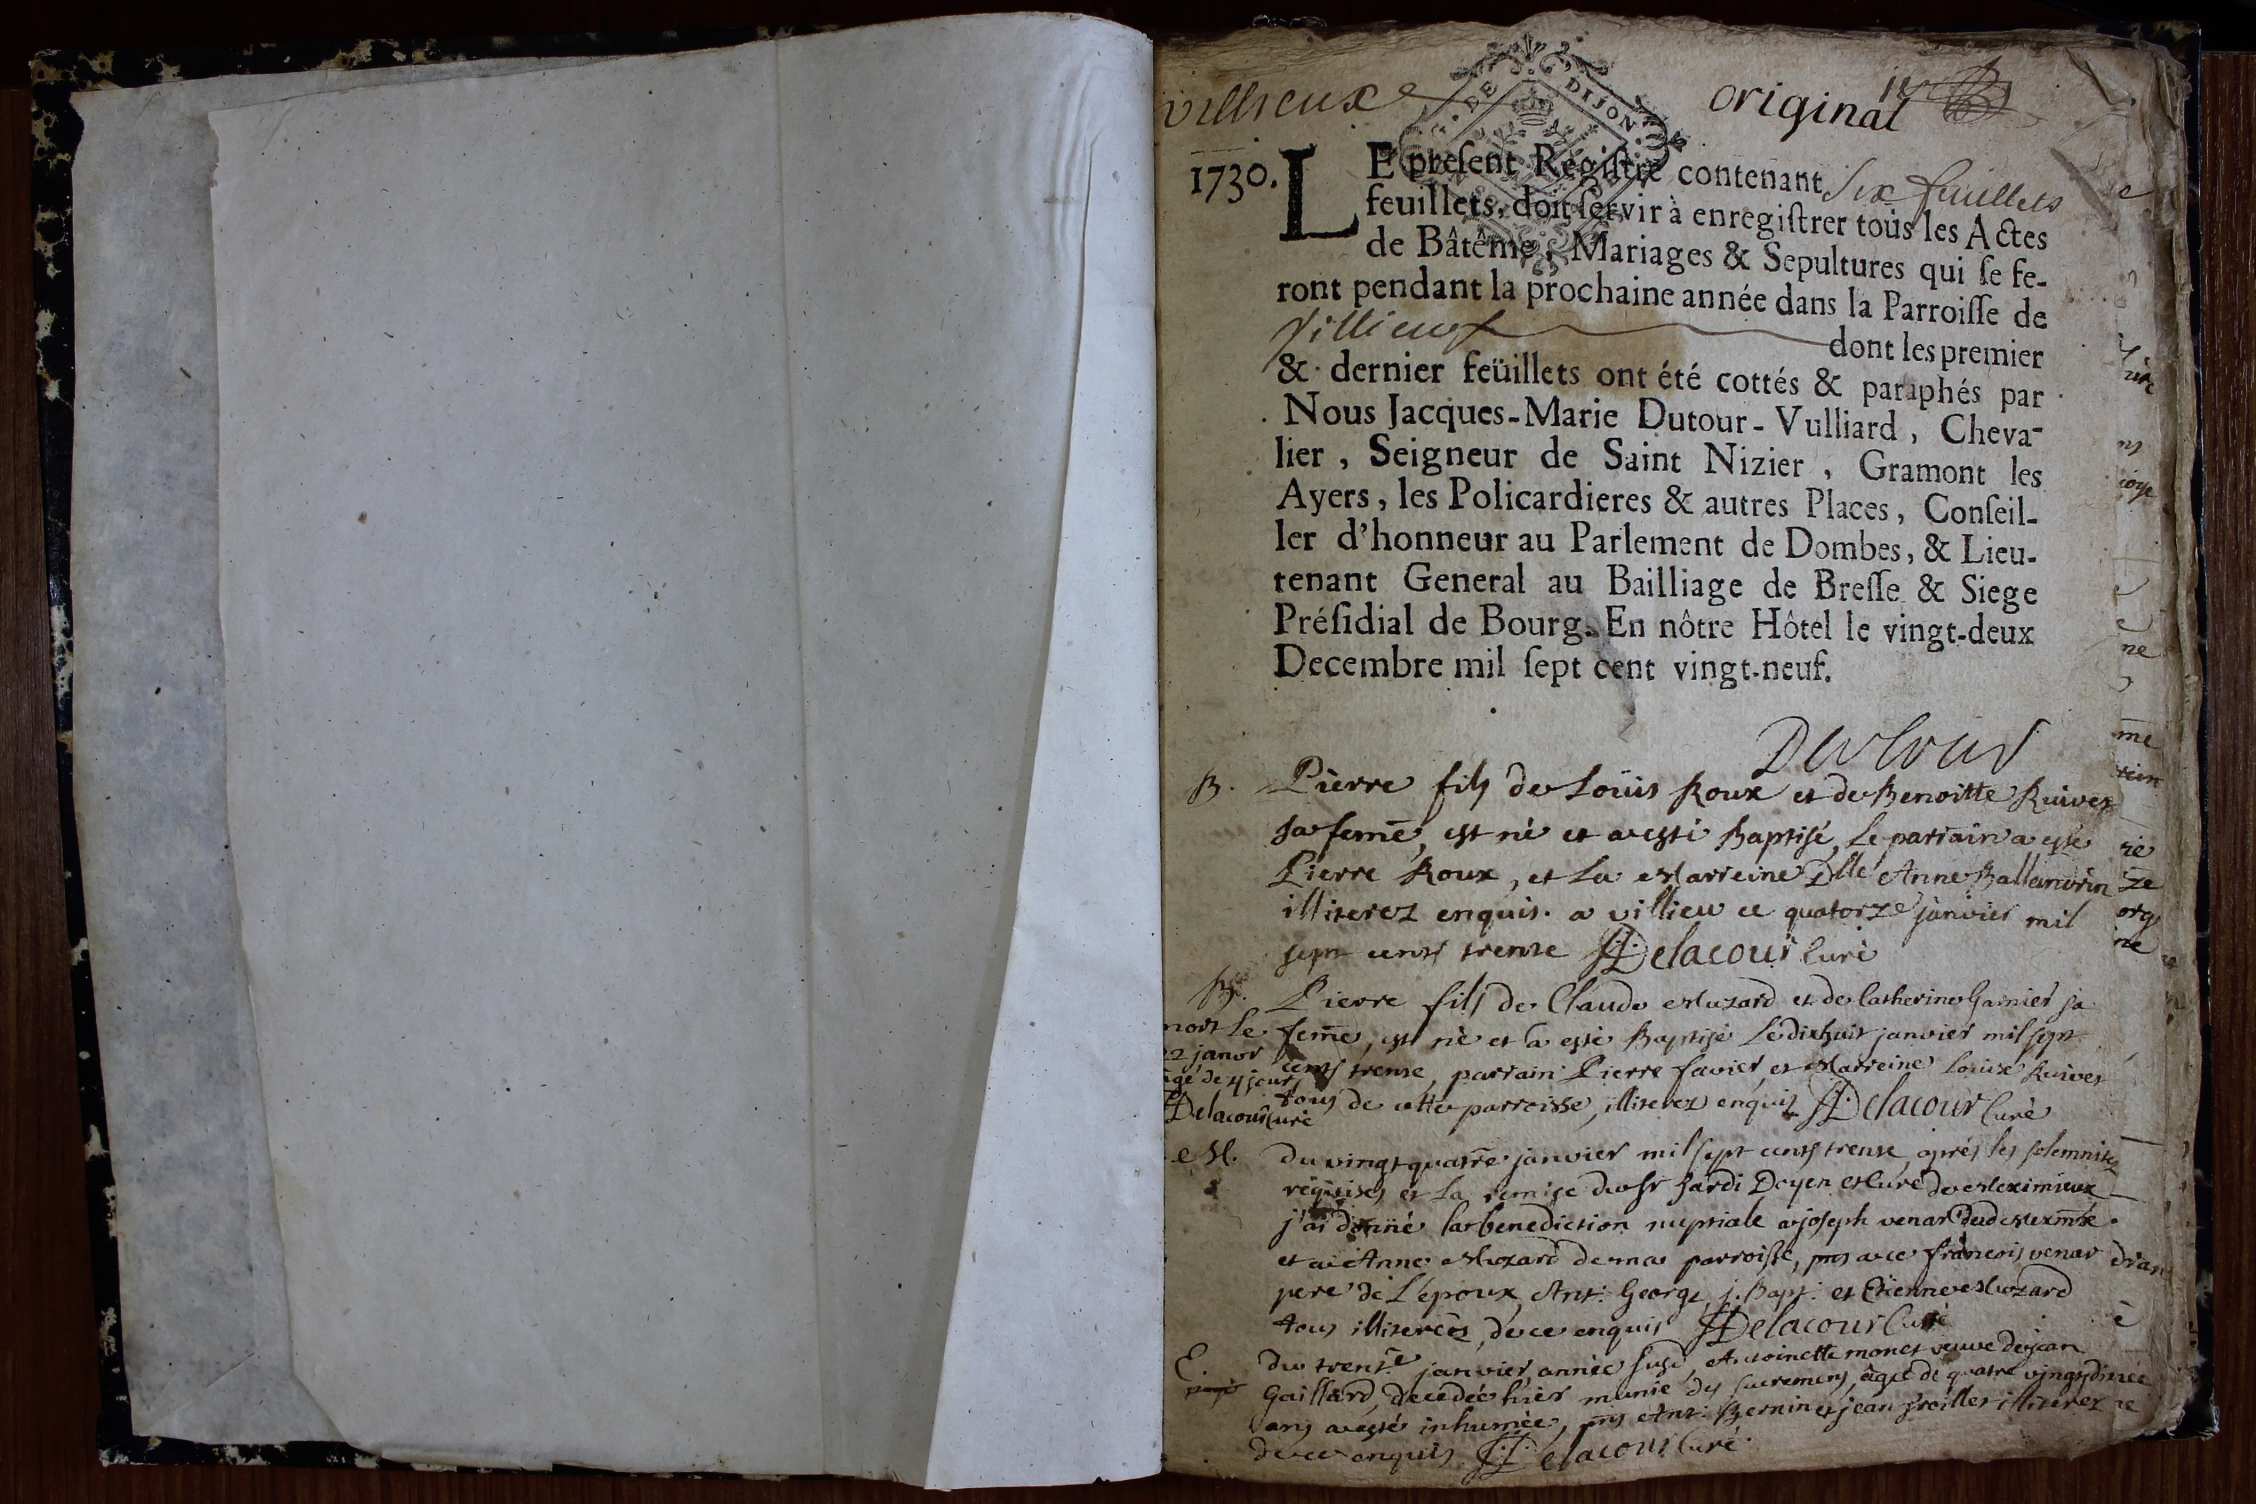 villieux
original
DE DIJON
1730.
LE preſent Régiſtre contenant six feuillets
feuillets, doit ſervir à enregiſtrer tous les Actes
de Bâtême, Mariages & Sepultures qui ſe fe-
ront pendant la prochaine année dans la Parroiſſe de
Villieux dont les premier
& dernier feüillets ont été cottés & paraphés par
Nous Jacques-Marie Dutour-Vulliard, Cheva-
lier, Seigneur de Saint Nizier, Gramont les
Ayers, les Policardieres & autres Places, Conſeil-
ler d'honneur au Parlement de Dombes, & Lieu-
tenant General au Bailliage de Breſſe & Siege
Préſidial de Bourg. En nôtre Hôtel le vingt-deux
Decembre mil ſept cent vingt-neuf.
Dutour
B. Pierre fils de Loüis Roux et de Benoitte Ruivet
sa feme, est né et a esté Baptisé, Le parrain a esté
Pierre Roux, et La Marreine Dlle Anne
illiterez enquis. a villieu ce quatorze janvier mil
sept cents trente Delacour Curé
B. Pierre fils de Claude Muzard et de Catherine Garnier sa
feme, est né et a esté Baptisé Le dixhuit janvier mil sept
cents trente, parrain Pierre favier, et Marreine Louise Ruivet
tous de cette parroisse, illiterez enquis Delacour Curé
mort le
22 janvr
agé de 4 jours
Delacour Curé
M. du vingt quatre janvier mil sept cents trente, après les solemnitez
requises, et La remise du Sr Jardi Doyen et Curé de Meximieux
j'ai donné la benediction nuptiale a joseph venar dud Meximx
et a Anne Muzard de ma parroisse, pns a ce françois venar
pere de L'époux, Ant: George, j. Bapt: et Etienne Muzard
tous illiterez, de ce enquis Delacour Curé
E. du trente janvier, année susd, Antoinette monet veuve de jean
Gaillard, decedée hier munie des sacremens, agée de quatre vingt
ans a esté inhumée, pns Ant: Bernin et jean illiterez
de ce enquis Delacour Curé.